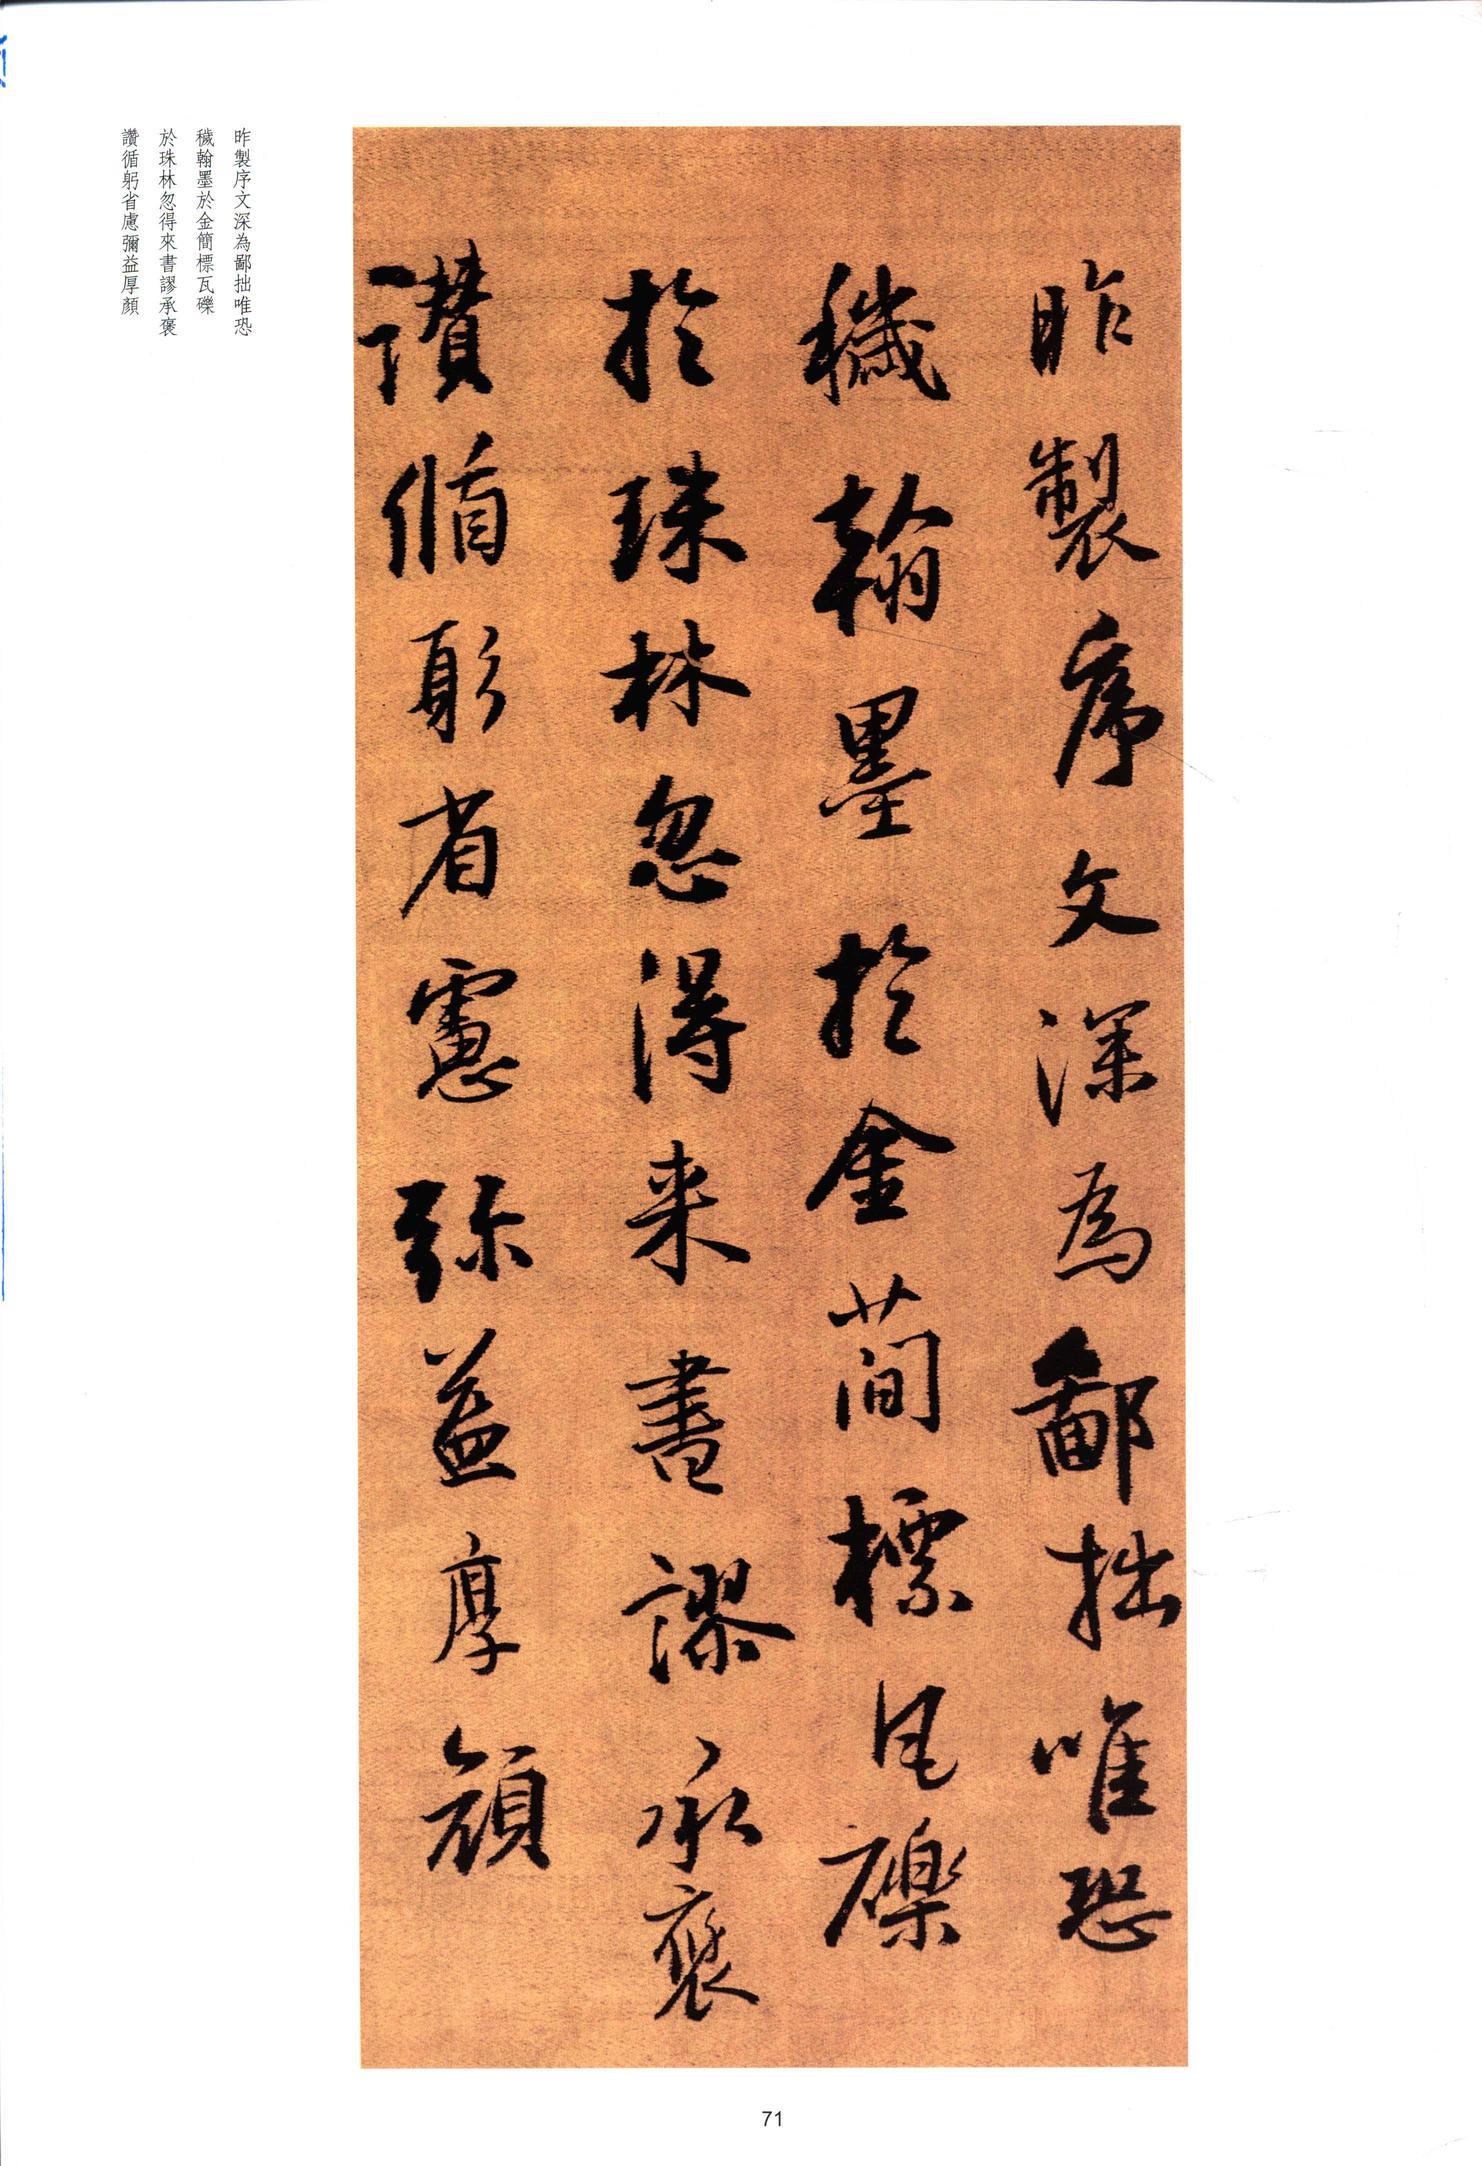 昨製序文深為鄙拙唯恐
穢翰墨於金簡標瓦礫
於珠林忽得來書謬承褒
讚循躬省慮彌益厚顏
昨製序文深為鄙拙唯恐
穢翰墨於金簡標瓦礫
於珠林忽得来書謬承褒
讃循躬省慮弥益厚顔
71